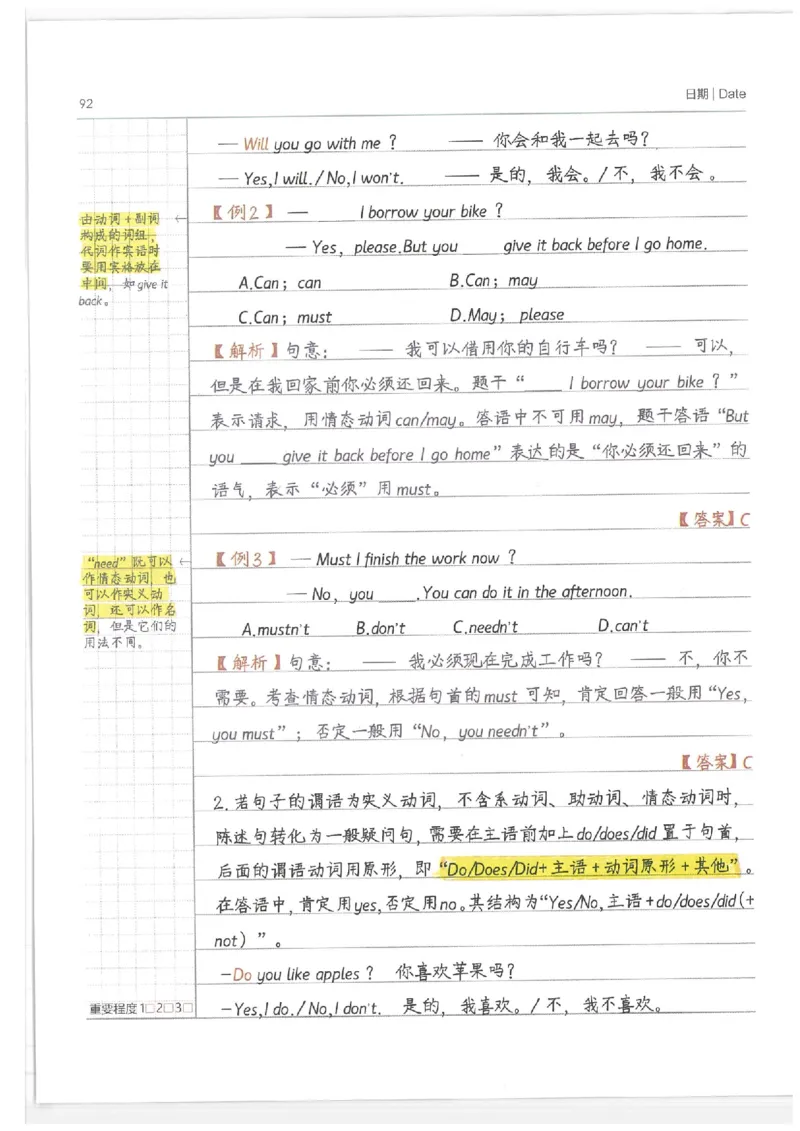 92
日期 | Date
— Will you go with me ? —— 你会和我一起去吗?
— Yes,I will. / No,I won't. —— 是的，我会。/ 不，我不会。
由动词+副词
构成的词组，
代词作宾语时
要用宾格放在
中间，如give it
back。
【例2】 — ____ I borrow your bike ?
— Yes, please.But you ____ give it back before I go home.
A.Can; can B.Can; may
C.Can; must D.May; please
【解析】句意：—— 我可以借用你的自行车吗? —— 可以，
但是在我回家前你必须还回来。题干“____ I borrow your bike ?”
表示请求，用情态动词can/may。答语中不可用may，题干答语“But
you ____ give it back before I go home”表达的是“你必须还回来”的
语气，表示“必须”用must。
【答案】C
“need”既可以
作情态动词，也
可以作实义动
词，还可以作名
词，但是它们的
用法不同。
【例3】 — Must I finish the work now ?
— No, you ____.You can do it in the afternoon.
A.mustn't B.don't C.needn't D.can't
【解析】句意：—— 我必须现在完成工作吗? —— 不，你不
需要。考查情态动词，根据句首的must 可知，肯定回答一般用“Yes,
you must”；否定一般用“No, you needn't”。
【答案】C
2.若句子的谓语为实义动词，不含系动词、助动词、情态动词时，
陈述句转化为一般疑问句，需要在主语前加上do/does/did置于句首，
后面的谓语动词用原形，即“Do/Does/Did+主语+动词原形+其他”。
在答语中，肯定用yes,否定用no。其结构为“Yes/No,主语+do/does/did(+
not)”。
—Do you like apples ? 你喜欢苹果吗?
—Yes,I do./ No,I don't. 是的，我喜欢。/ 不，我不喜欢。
重要程度 1□2□3□